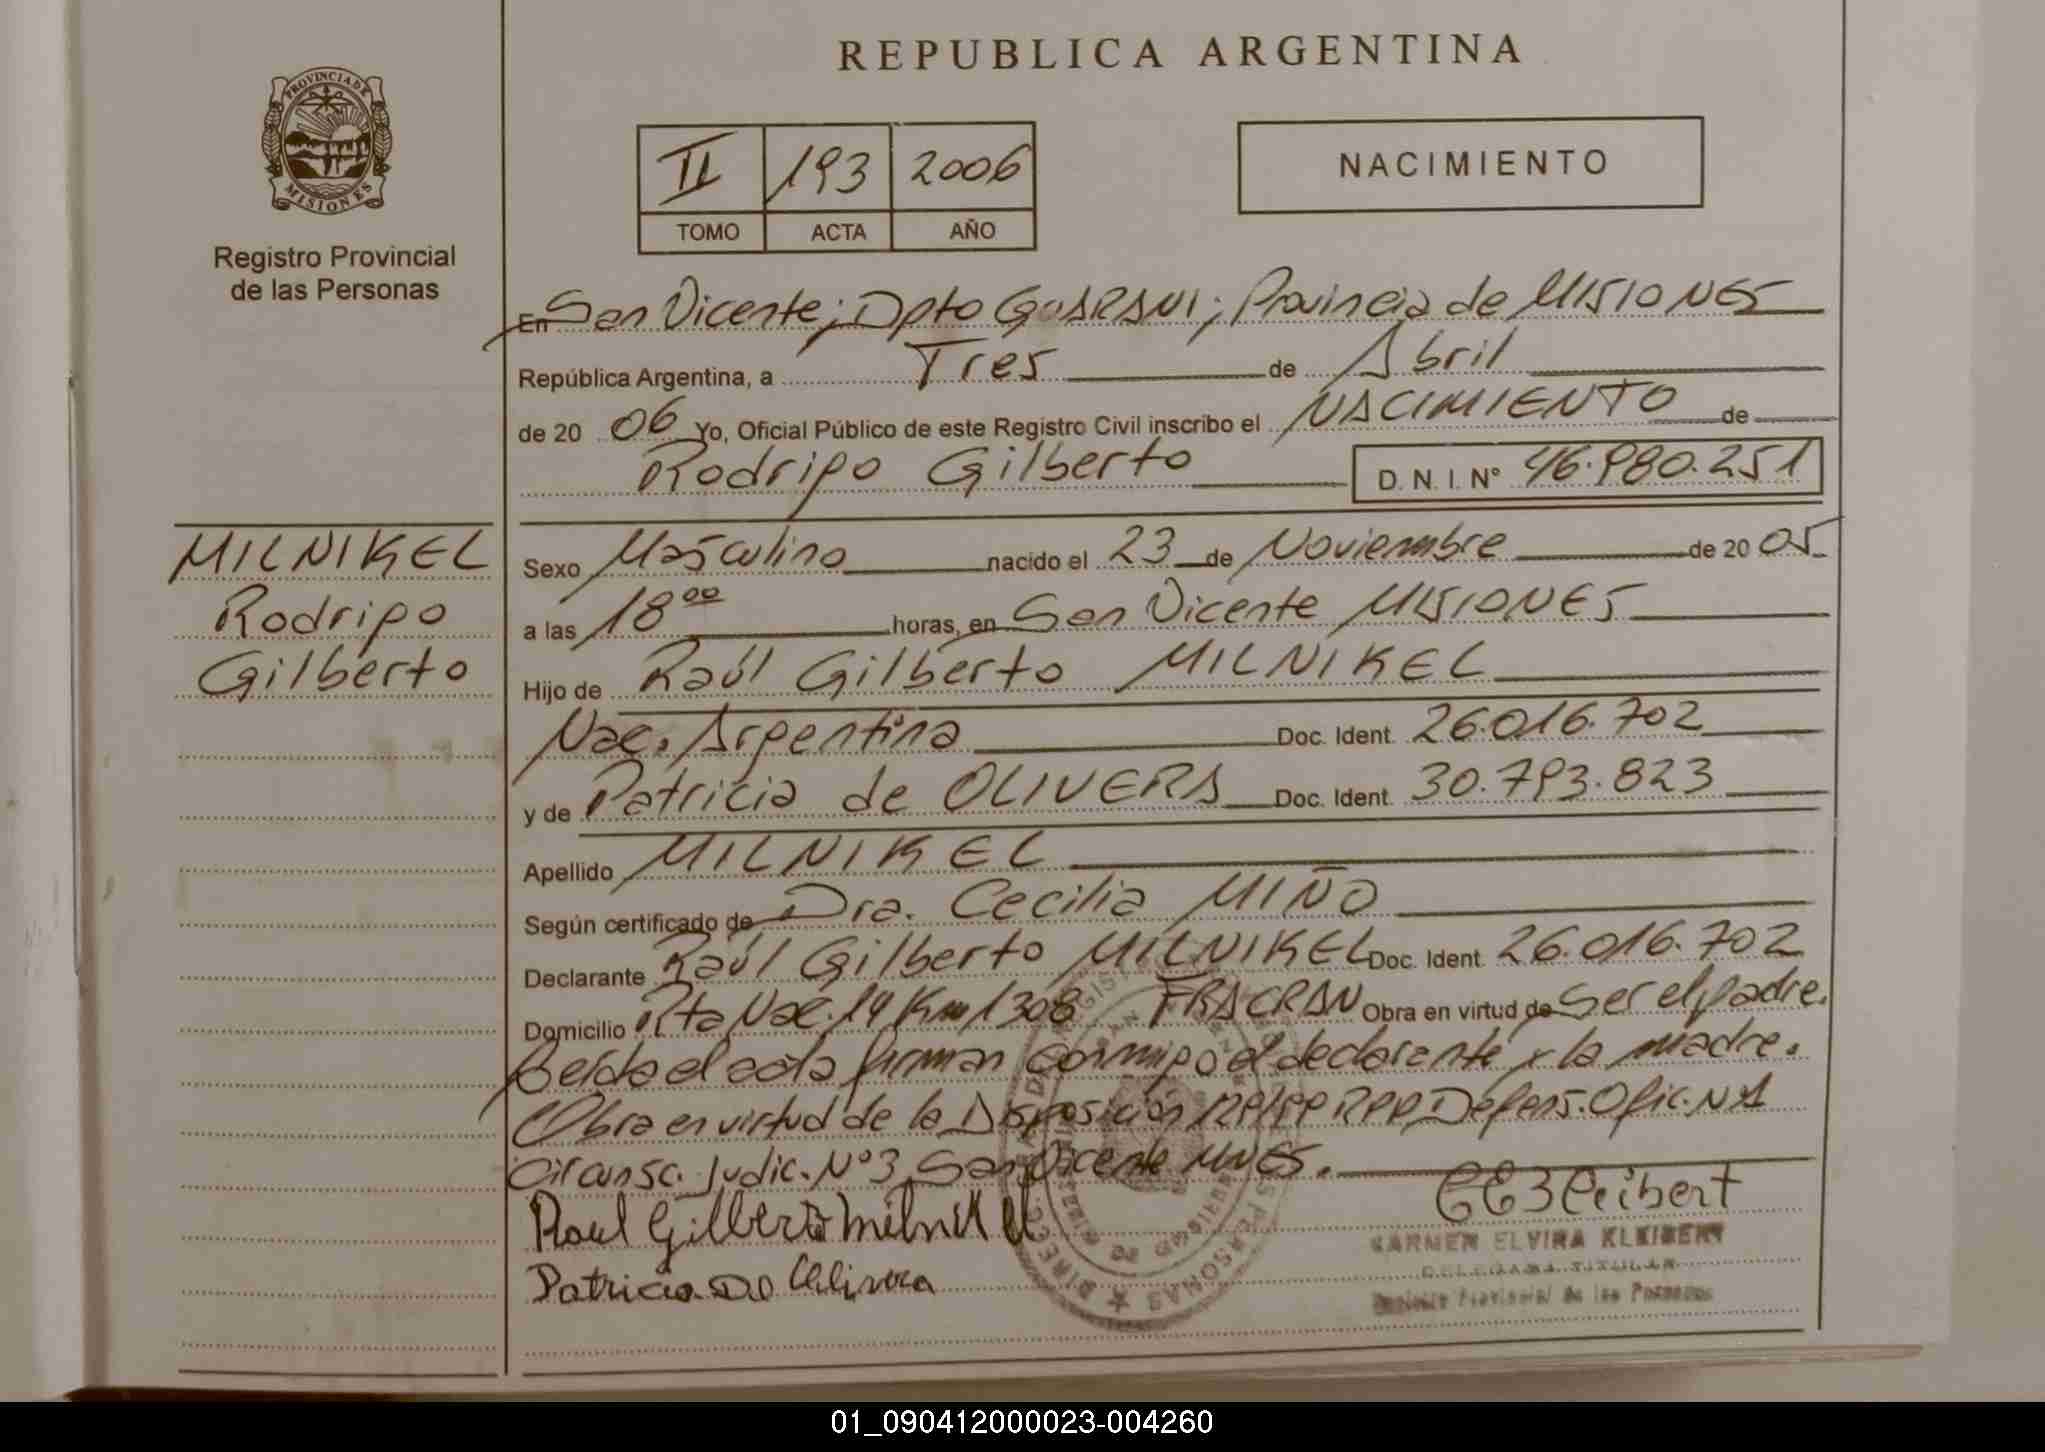 REPUBLICA ARGENTINA
PROVINCIA DE
MISIONES
Registro Provincial
de las Personas
II 193 2006
TOMO ACTA AÑO
NACIMIENTO
En San Vicente; Dpto GUARANI; Provincia de MISIONES
República Argentina, a Tres de Abril
de 20 06 Yo, Oficial Público de este Registro Civil inscribo el NACIMIENTO de
Rodrigo Gilberto D. N. I. Nº 46.980.251
MILNIKEL
Rodrigo
Gilberto
Sexo Masculino nacido el 23 de Noviembre de 20 05
a las 18 00 horas, en San Vicente MISIONES
Hijo de Raúl Gilberto MILNIKEL
Nac. Argentina Doc. Ident. 26.016.702
y de Patricia de OLIVERA Doc. Ident. 30.793.823
Apellido MILNIKEL
Según certificado de Dra. Cecilia MIÑO
Declarante Raúl Gilberto MILNIKEL Doc. Ident. 26.016.702
Domicilio Rta Nac. 14 Km 1308 FRACRAN Obra en virtud de Ser el padre.
Leída el acta firman conmigo el declarante y la madre.
Obra en virtud de la Disposición Defens. Ofic. N 1
Circunsc. Judic. Nº 3 San Vicente MNES.
Raul Gilberto Milnikel
Patricia De Olivera
CARMEN ELVIRA KLEIBERT
DELEGADA TITULAR
Registro Provincial de las Personas
01_090412000023-004260